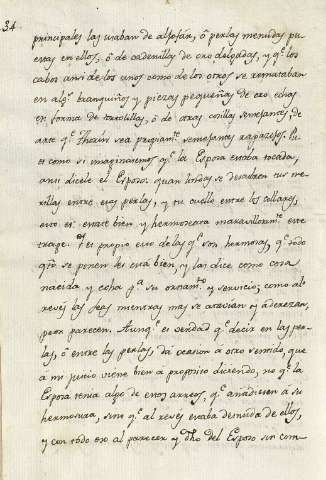 34
principales las usaban de aljofar, ô perlas menudas pu
estas en ellos, ô de cadenillas de oro delgadas, y qᵉ los
cabos ansi de los unos como de los otros se remataban
en algˢ brinquiños y piezas pequeñas de oro echas
en forma de tortolillas, ô de otras cosillas semejantes; de
arte qᵉ Thorin sea propiamᵗᵉ semejantes rapazejos. Pu
es como si imaginasemos qᵉ la Esposa estaba tocada,
ansi dicele el Esposo: quan lindas se descubren tus me
xillas entre esas perlas, y tu cuello entre los collares,
esto es: estate bien y hermoseara maravillosamᵗᵉ este
traxe. Y es propio esto de las qᵉ son hermosas, qᵉ todo
qᵗᵒ se ponen les está bien, y las dice como cosa
nacida, y echa pᵃ su ornamᵗᵒ y servicio; como al
revés las feas mientras mas se atavian y aderezan,
peor parecen. Aunqᵉ es verdad qᵉ decir en las per
las, ô entre las perlas, dá ocasion a otro sentido, que
a mi juicio viene bien a proposito diciendo, no qᵉ la
Esposa tenia algo de estos arreos, qᵉ añadiesen á su
hermosura, sino qᵉ al reves estaba desnuda de ellos,
y con todo eso al parecer y dho del Esposo sin com-